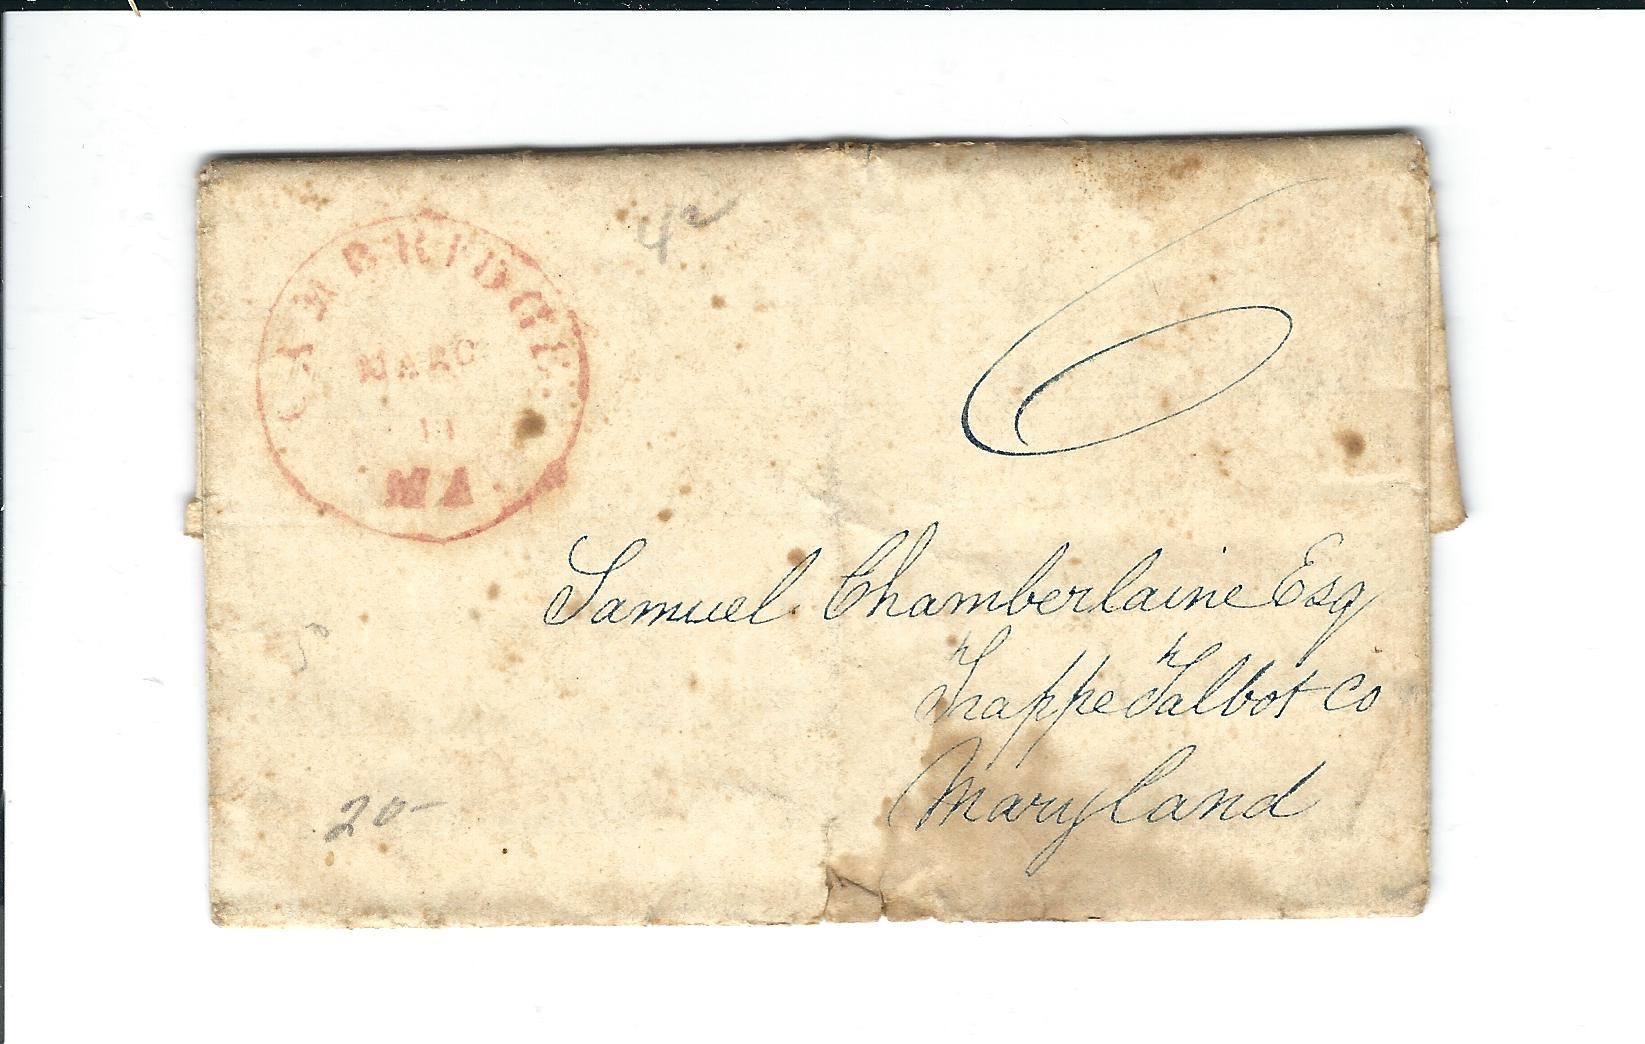 CAMBRIDGE
MARC
11
Md
6
Samuel Chamberlaine Esq
Trappe Talbot Co
Maryland
20-